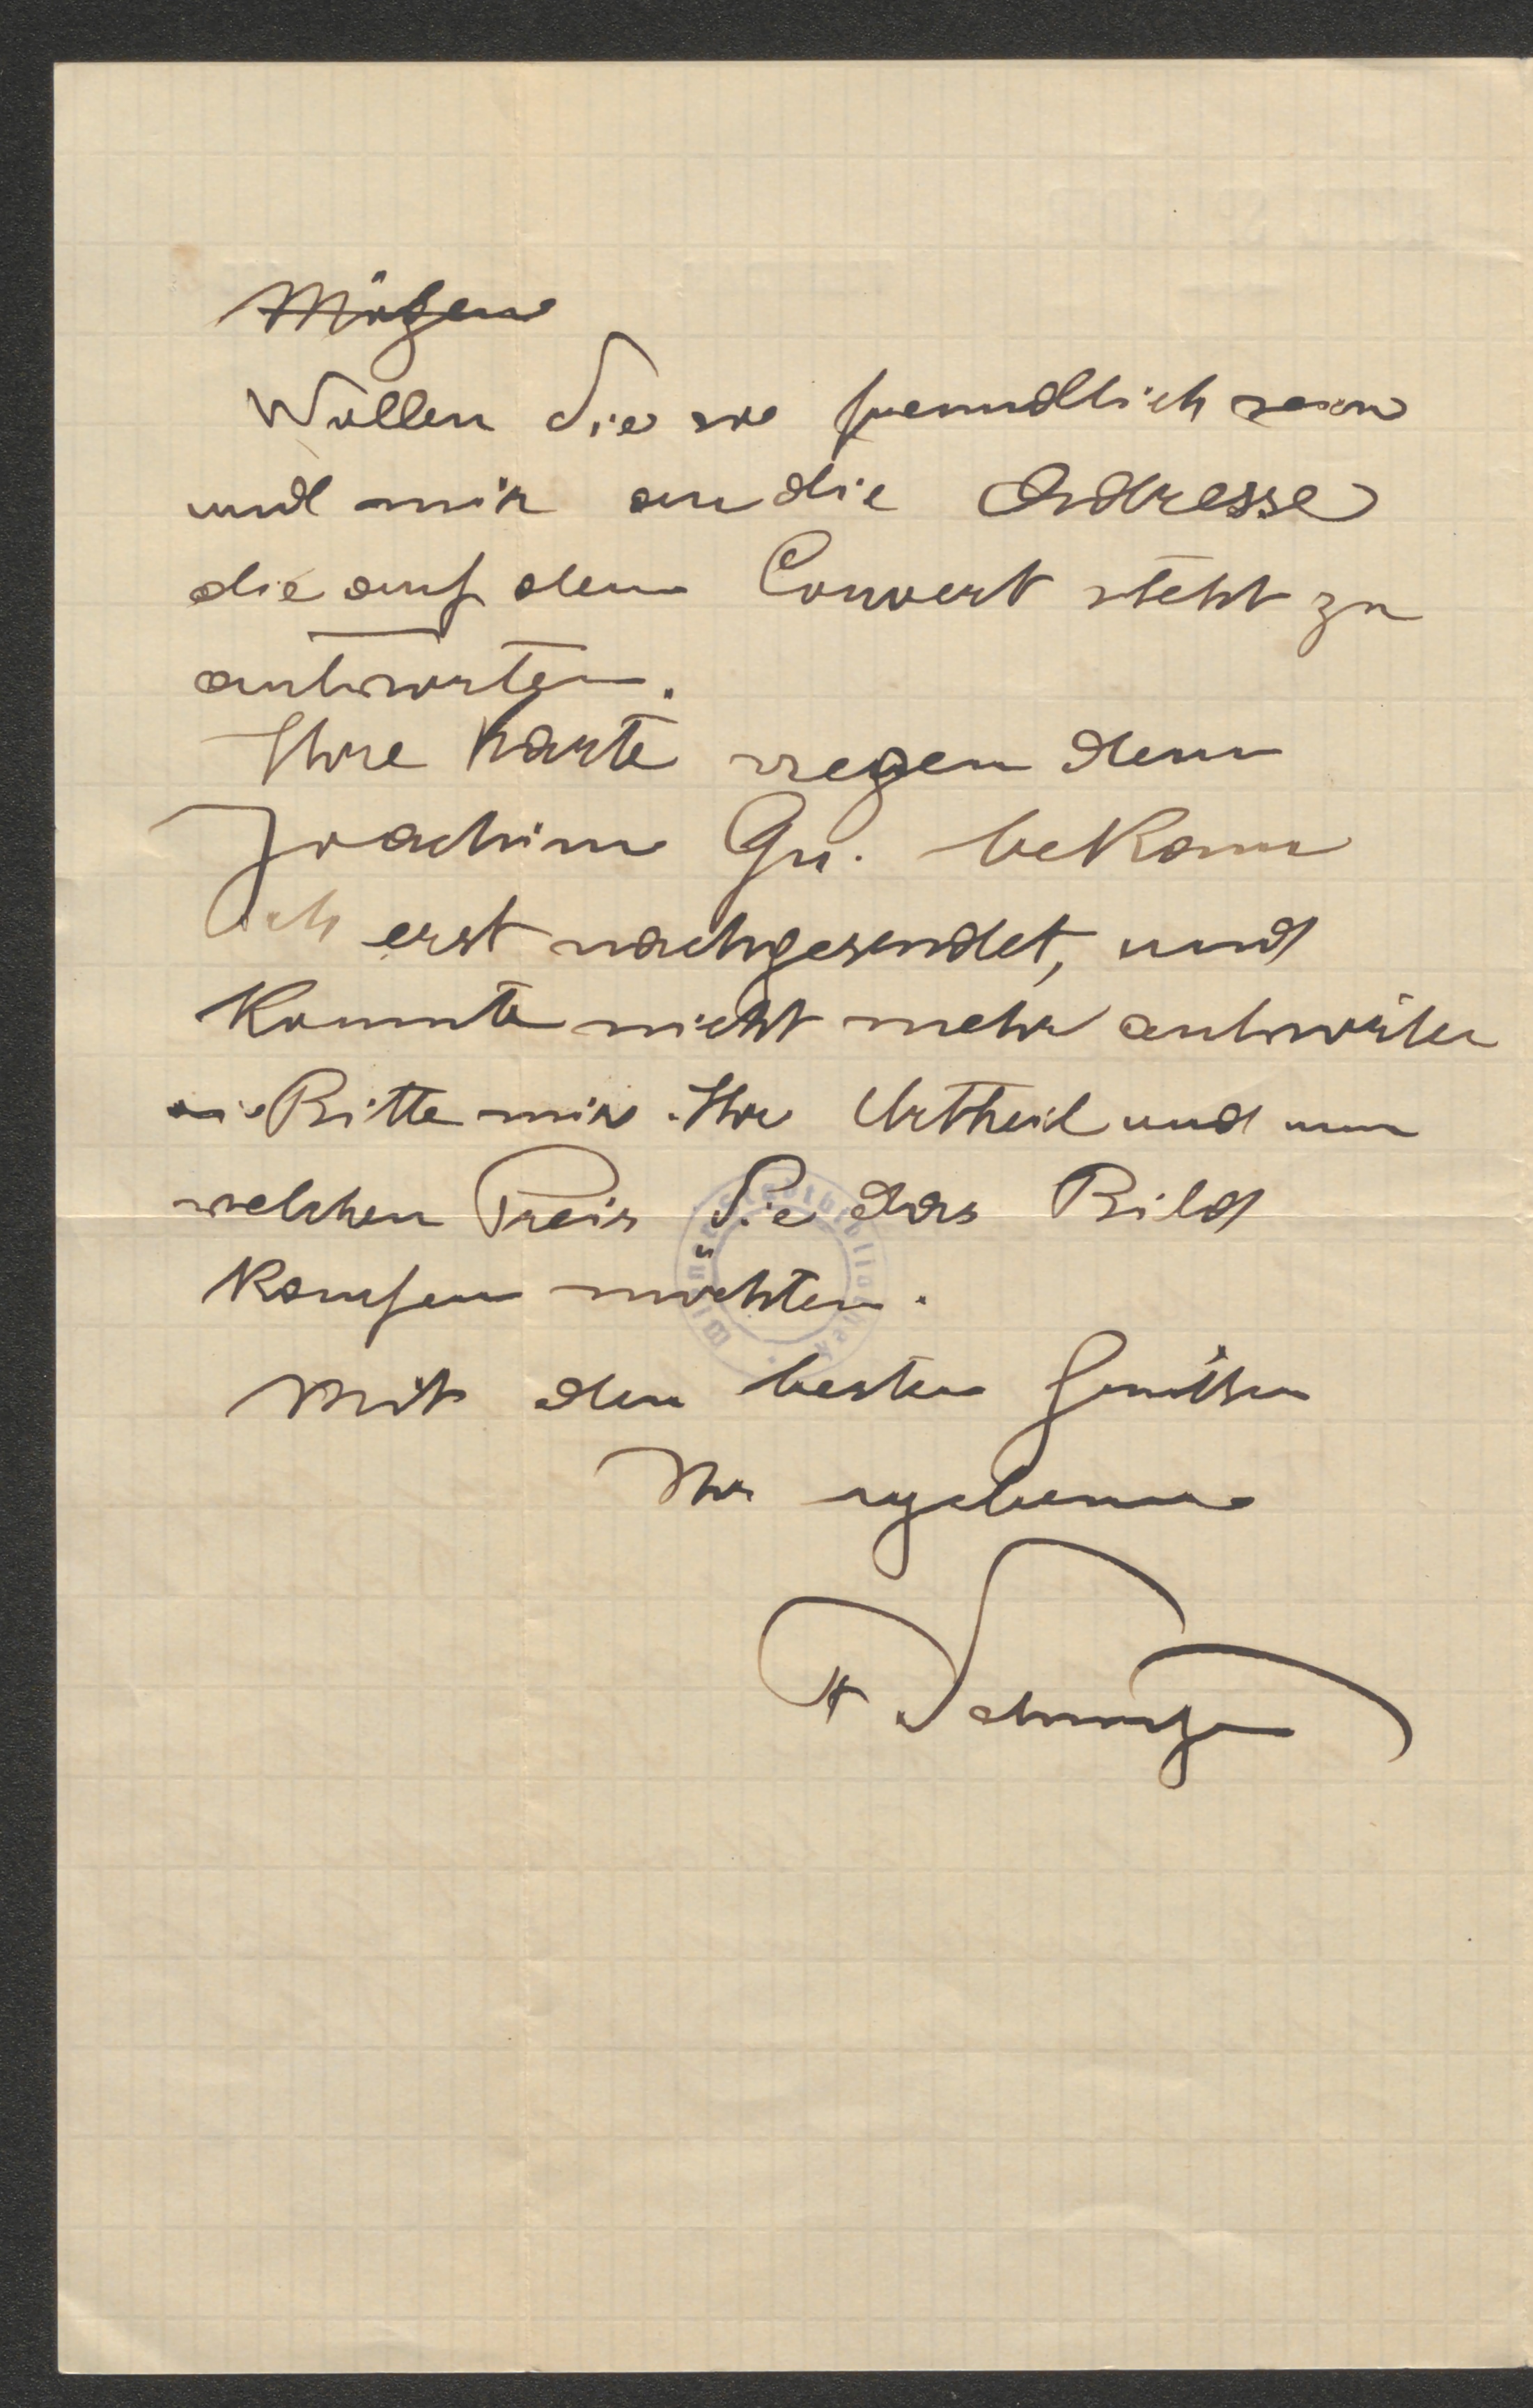 Mögen
Wollen Sie so freundlich sein
und mir an die Adresse
die auf dem Couvert steht zu
antworten.
Ihre Karte wegen dem
Joachim Gu. bekam
ich erst nachgesendet, und
konnte nicht mehr antworten
Bitte mir Ihr Urtheil und um
welchen Preis Sie das Bild
kaufen möchten.
Mit den besten Grüßen
Ihr ergebener